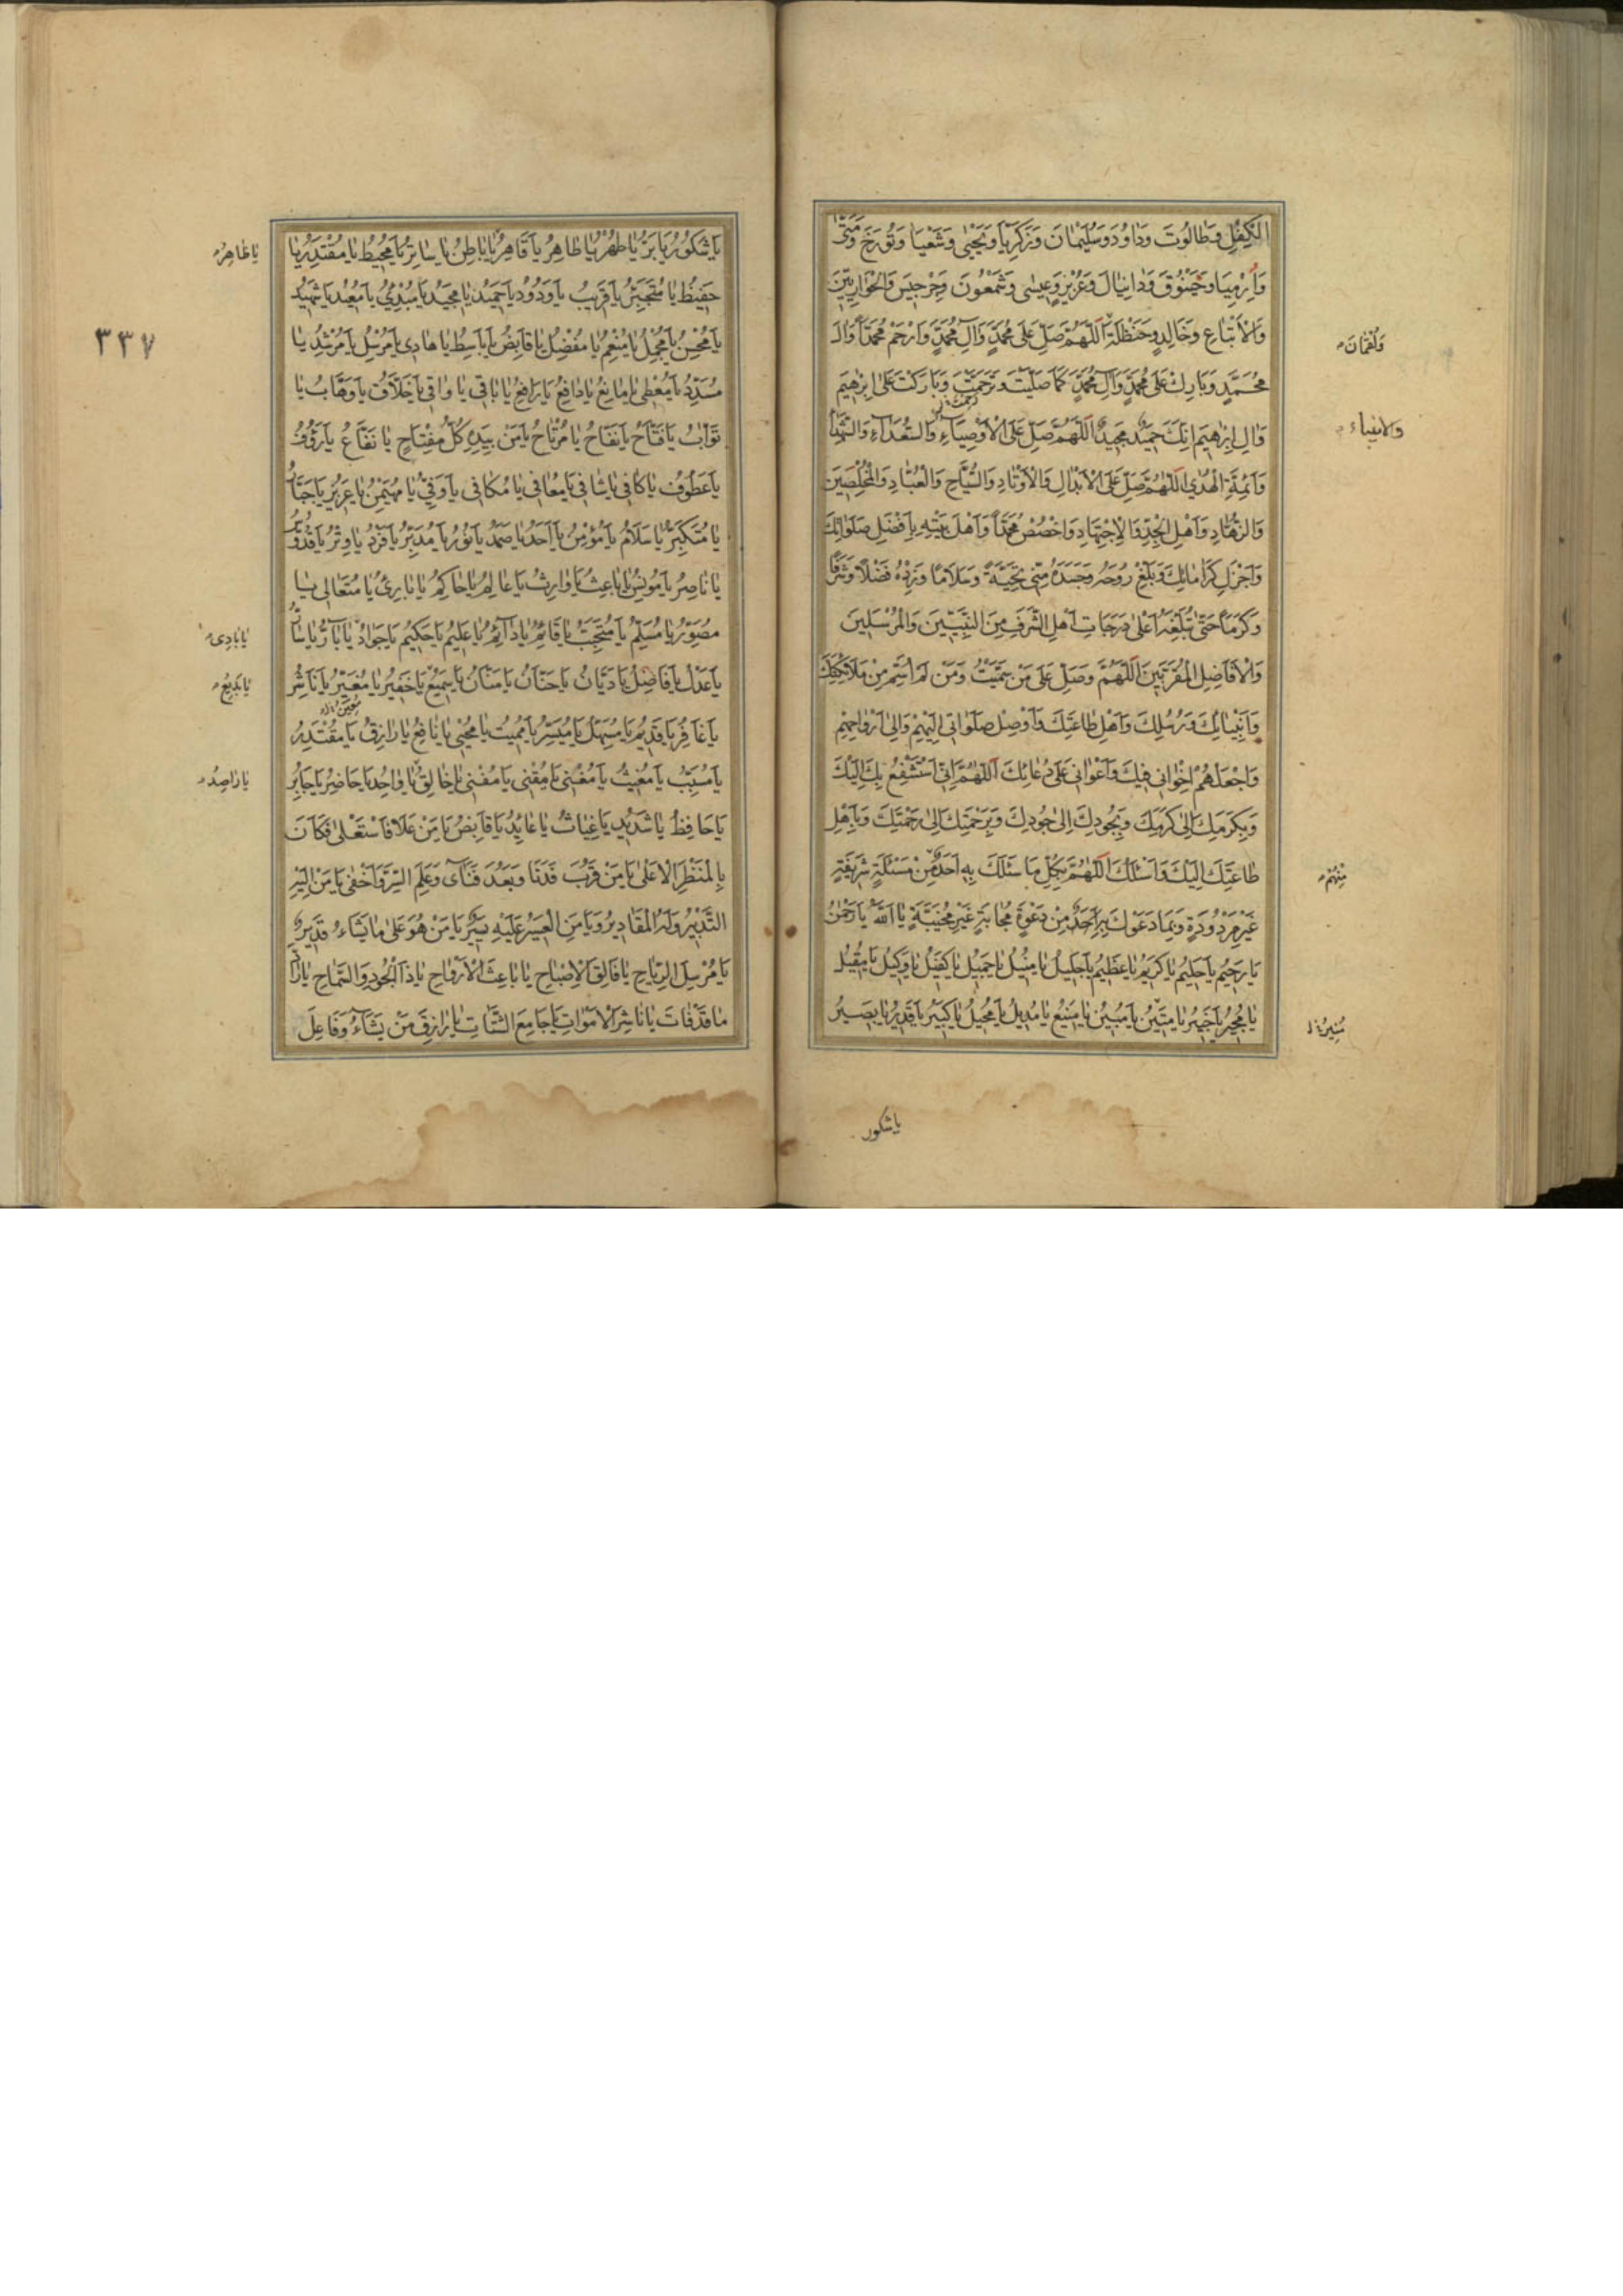 الْكِفْلِ وَطَالُوتَ وَدَاوُدَ وَسُلَيْمَانَ وَزَكَرِيَّا وَيَحْيَى وَشَعْيَا وَتُورَخَ وَمَتَّى
وَاِرْمِيَا وَحَيْقُوقَ وَدَانِيَالَ وَعُزَيْرٍ وَعِيسَى وَشَمْعُونَ وَجِرْجِيسَ وَالْحَوَارِيِّينَ
وَالْأَتْبَاعِ وَخَالِدٍ وَحَنْظَلَةَ اَللّٰهُمَّ صَلِّ عَلَى مُحَمَّدٍ وَآلِ مُحَمَّدٍ وَارْحَمْ مُحَمَّدًا وَآلَ
وَلُقْمَانَ
مُحَمَّدٍ وَبَارِكْ عَلَى مُحَمَّدٍ وَآلِ مُحَمَّدٍ كَمَا صَلَّيْتَ وَتَرَحَّمْتَ وَبَارَكْتَ عَلَى اِبْرٰهِيمَ
وَآلِ اِبْرٰهِيمَ اِنَّكَ حَمِيدٌ مَجِيدٌ اَللّٰهُمَّ صَلِّ عَلَى الْاَوْصِيَاءِ وَالسُّعَدَاءِ وَالشُّهَدَاءِ
والانبياء
وَاَئِمَّةِ الْهُدَى اَللّٰهُمَّ صَلِّ عَلَى الْاَبْدَالِ وَالْاَوْتَادِ وَالسُّيَّاحِ وَالْعُبَّادِ وَالْمُخْلِصِينَ
وَالزُّهَّادِ وَاَهْلِ الْجِدِّ وَالْاِجْتِهَادِ وَاخْصُصْ مُحَمَّدًا وَاَهْلَ بَيْتِهِ بِاَفْضَلِ صَلَوَاتِكَ
وَاَجْزَلِ كَرَامَاتِكَ وَبَلِّغْ رُوحَهُ وَجَسَدَهُ مِنِّي تَحِيَّةً وَسَلَامًا وَزِدْهُ فَضْلًا وَشَرَفًا
وَكَرَمًا حَتَّى تُبَلِّغَهُ اَعْلَى دَرَجَاتِ اَهْلِ الشَّرَفِ مِنَ النَّبِيِّينَ وَالْمُرْسَلِينَ
وَالْاَفَاضِلِ الْمُقَرَّبِينَ اَللّٰهُمَّ وَصَلِّ عَلَى مَنْ سَمَّيْتُ وَمَنْ لَمْ اُسَمِّ مِنْ مَلَائِكَتِكَ
وَاَنْبِيَائِكَ وَرُسُلِكَ وَاَهْلِ طَاعَتِكَ وَاَوْصِلْ صَلَوَاتِي اِلَيْهِمْ وَاِلَى اَرْوَاحِهِمْ
وَاجْعَلْهُمْ اِخْوَانِي فِيكَ وَاَعْوَانِي عَلَى دُعَائِكَ اَللّٰهُمَّ اِنِّي اَسْتَشْفِعُ بِكَ اِلَيْكَ
وَبِكَرَمِكَ اِلَى كَرَمِكَ وَبِجُودِكَ اِلَى جُودِكَ وَبِرَحْمَتِكَ اِلَى رَحْمَتِكَ وَبِاَهْلِ
طَاعَتِكَ اِلَيْكَ وَاَسْئَلُكَ اَللّٰهُمَّ بِكُلِّ مَا سَئَلَكَ بِهِ اَحَدٌ مِنْ مَسْئَلَةٍ شَرِيفَةٍ
مِنْهُمْ
غَيْرِ مَرْدُودَةٍ وَبِمَا دَعَوْكَ بِهِ اَحَدٌ مِنْ دَعْوَةٍ مُجَابَةٍ غَيْرِ مُخَيَّبَةٍ يَا اَللّٰهُ يَا رَحْمٰنُ
يَا رَحِيمُ يَا حَلِيمُ يَا كَرِيمُ يَا عَظِيمُ يَا جَلِيلُ يَا مُنِيلُ يَا جَمِيلُ يَا كَفِيلُ يَا وَكِيلُ يَا مُقِيلُ
يَا مُجِيرُ يَا خَبِيرُ يَا مَتِينُ يَا مُبِينُ يَا مَنِيعُ يَا مُدِيلُ يَا مُحِيلُ يَا كَبِيرُ يَا قَدِيرُ يَا بَصِيرُ
مُنِيرُ
ياشكور
٣٣٧
يَا شَكُورُ يَا بَرُّ يَا طُهْرُ يَا طَاهِرُ يَا قَاهِرُ يَا بَاطِنُ يَا سَاتِرُ يَا مُحِيطُ يَا مُقْتَدِرُ يَا
يَا ظَاهِرُ
حَفِيظُ يَا مُتَجَبِّرُ يَا قَرِيبُ يَا وَدُودُ يَا حَمِيدُ يَا مَجِيدُ يَا مُبْدِئُ يَا مُعِيدُ يَا شَهِيدُ
يَا مُحْسِنُ يَا مُجْمِلُ يَا مُنْعِمُ يَا مُفْضِلُ يَا قَابِضُ يَا بَاسِطُ يَا هَادِي يَا مُرْسِلُ يَا مُرْشِدُ يَا
مُسَدِّدُ يَا مُعْطِي يَا مَانِعُ يَا دَافِعُ يَا رَافِعُ يَا بَاقِي يَا وَاقِي يَا خَلَّاقُ يَا وَهَّابُ يَا
تَوَّابُ يَا فَتَّاحُ يَا نَفَّاحُ يَا مُرْتَاحُ يَا مَنْ بِيَدِهِ كُلُّ مِفْتَاحٍ يَا نَفَّاعُ يَا رَؤُفُ
يَا عَطُوفُ يَا كَافِي يَا شَافِي يَا مُعَافِي يَا مُكَافِي يَا وَفِيُّ يَا مُهَيْمِنُ يَا عَزِيزُ يَا جَبَّارُ
يَا مُتَكَبِّرُ يَا سَلَامُ يَا مُؤْمِنُ يَا اَحَدُ يَا صَمَدُ يَا نُورُ يَا مُدَبِّرُ يَا فَرْدُ يَا وِتْرُ يَا قُدُّوسُ
يَا نَاصِرُ يَا مُونِسُ يَا بَاعِثُ يَا وَارِثُ يَا عَالِمُ يَا حَاكِمُ يَا بَارِئُ يَا مُتَعَالِي يَا
مُصَوِّرُ يَا مُسَلِّمُ يَا مُتَحَبِّبُ يَا قَائِمُ يَا دَائِمُ يَا عَلِيمُ يَا حَكِيمُ يَا جَوَادُ يَا بَارُّ يَا سَارُّ
يَا بَادِي
يَا عَدْلُ يَا فَاضِلُ يَا دَيَّانُ يَا حَنَّانُ يَا مَنَّانُ يَا سَمِيعُ يَا خَفِيرُ يَا مُغَيِّرُ يَا نَاشِرُ
يَا بَدِيعُ
يَا غَافِرُ يَا قَدِيمُ يَا مُسَهِّلُ يَا مُيَسِّرُ يَا مُمِيتُ يَا مُحْيِي يَا نَافِعُ يَا رَازِقُ يَا مُقْتَدِرُ
يَا مُسَبِّبُ يَا مُغِيثُ يَا مُغْنِي يَا مُقْنِي يَا مُفْنِي يَا خَالِقُ يَا وَاحِدُ يَا حَاضِرُ يَا جَابِرُ
يَا رَاصِدُ
يَا حَافِظُ يَا شَدِيدُ يَا غِيَاثُ يَا عَائِدُ يَا قَابِضُ يَا مَنْ عَلَا فَاسْتَعْلَى فَكَانَ
بِالْمَنْظَرِ الْاَعْلَى يَا مَنْ قَرُبَ فَدَنَا وَبَعُدَ فَنَآى وَعَلِمَ السِّرَّ وَاَخْفَى يَا مَنْ اِلَيْهِ
التَّدْبِيرُ وَلَهُ الْمَقَادِيرُ وَيَا مَنِ الْعَسِيرُ عَلَيْهِ يَسِيرٌ يَا مَنْ هُوَ عَلَى مَا يَشَاءُ قَدِيرٌ
يَا مُرْسِلَ الرِّيَاحِ يَا فَالِقَ الْاِصْبَاحِ يَا بَاعِثَ الْاَرْوَاحِ يَا ذَا الْجُودِ وَالسَّمَاحِ يَا رَادَّ
مَا قَدْ فَاتَ يَا نَاشِرَ الْاَمْوَاتِ يَا جَامِعَ الشَّتَاتِ يَا رَازِقَ مَنْ يَشَاءُ وَفَاعِلَ